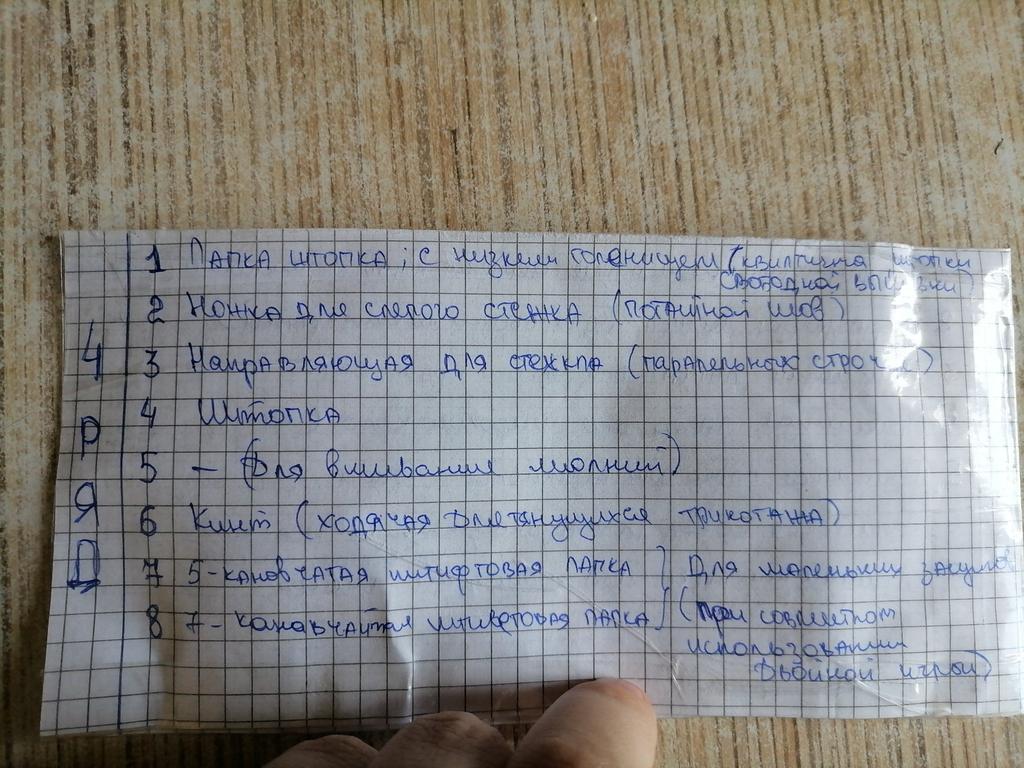 4 РЯД
1 ЛАПКА ШТОПКА; С низким голенищем (квилтинга штопки
свободной вышивки)
2 Ножка для слепого стежка (потайной шов)
3 Направляющая для стежка (паралельных строчек)
4 Штопка
5 – (Для вшивания молний)
6 Книт (ходячая для тянущихся трикотажа)
7 5-КАНОВЧАТАЯ штифтовая ЛАПКА } Для маленьких
8 7-канавчатая штифтовая ЛАПКА } (при совместном
использовании
двойной иглой)